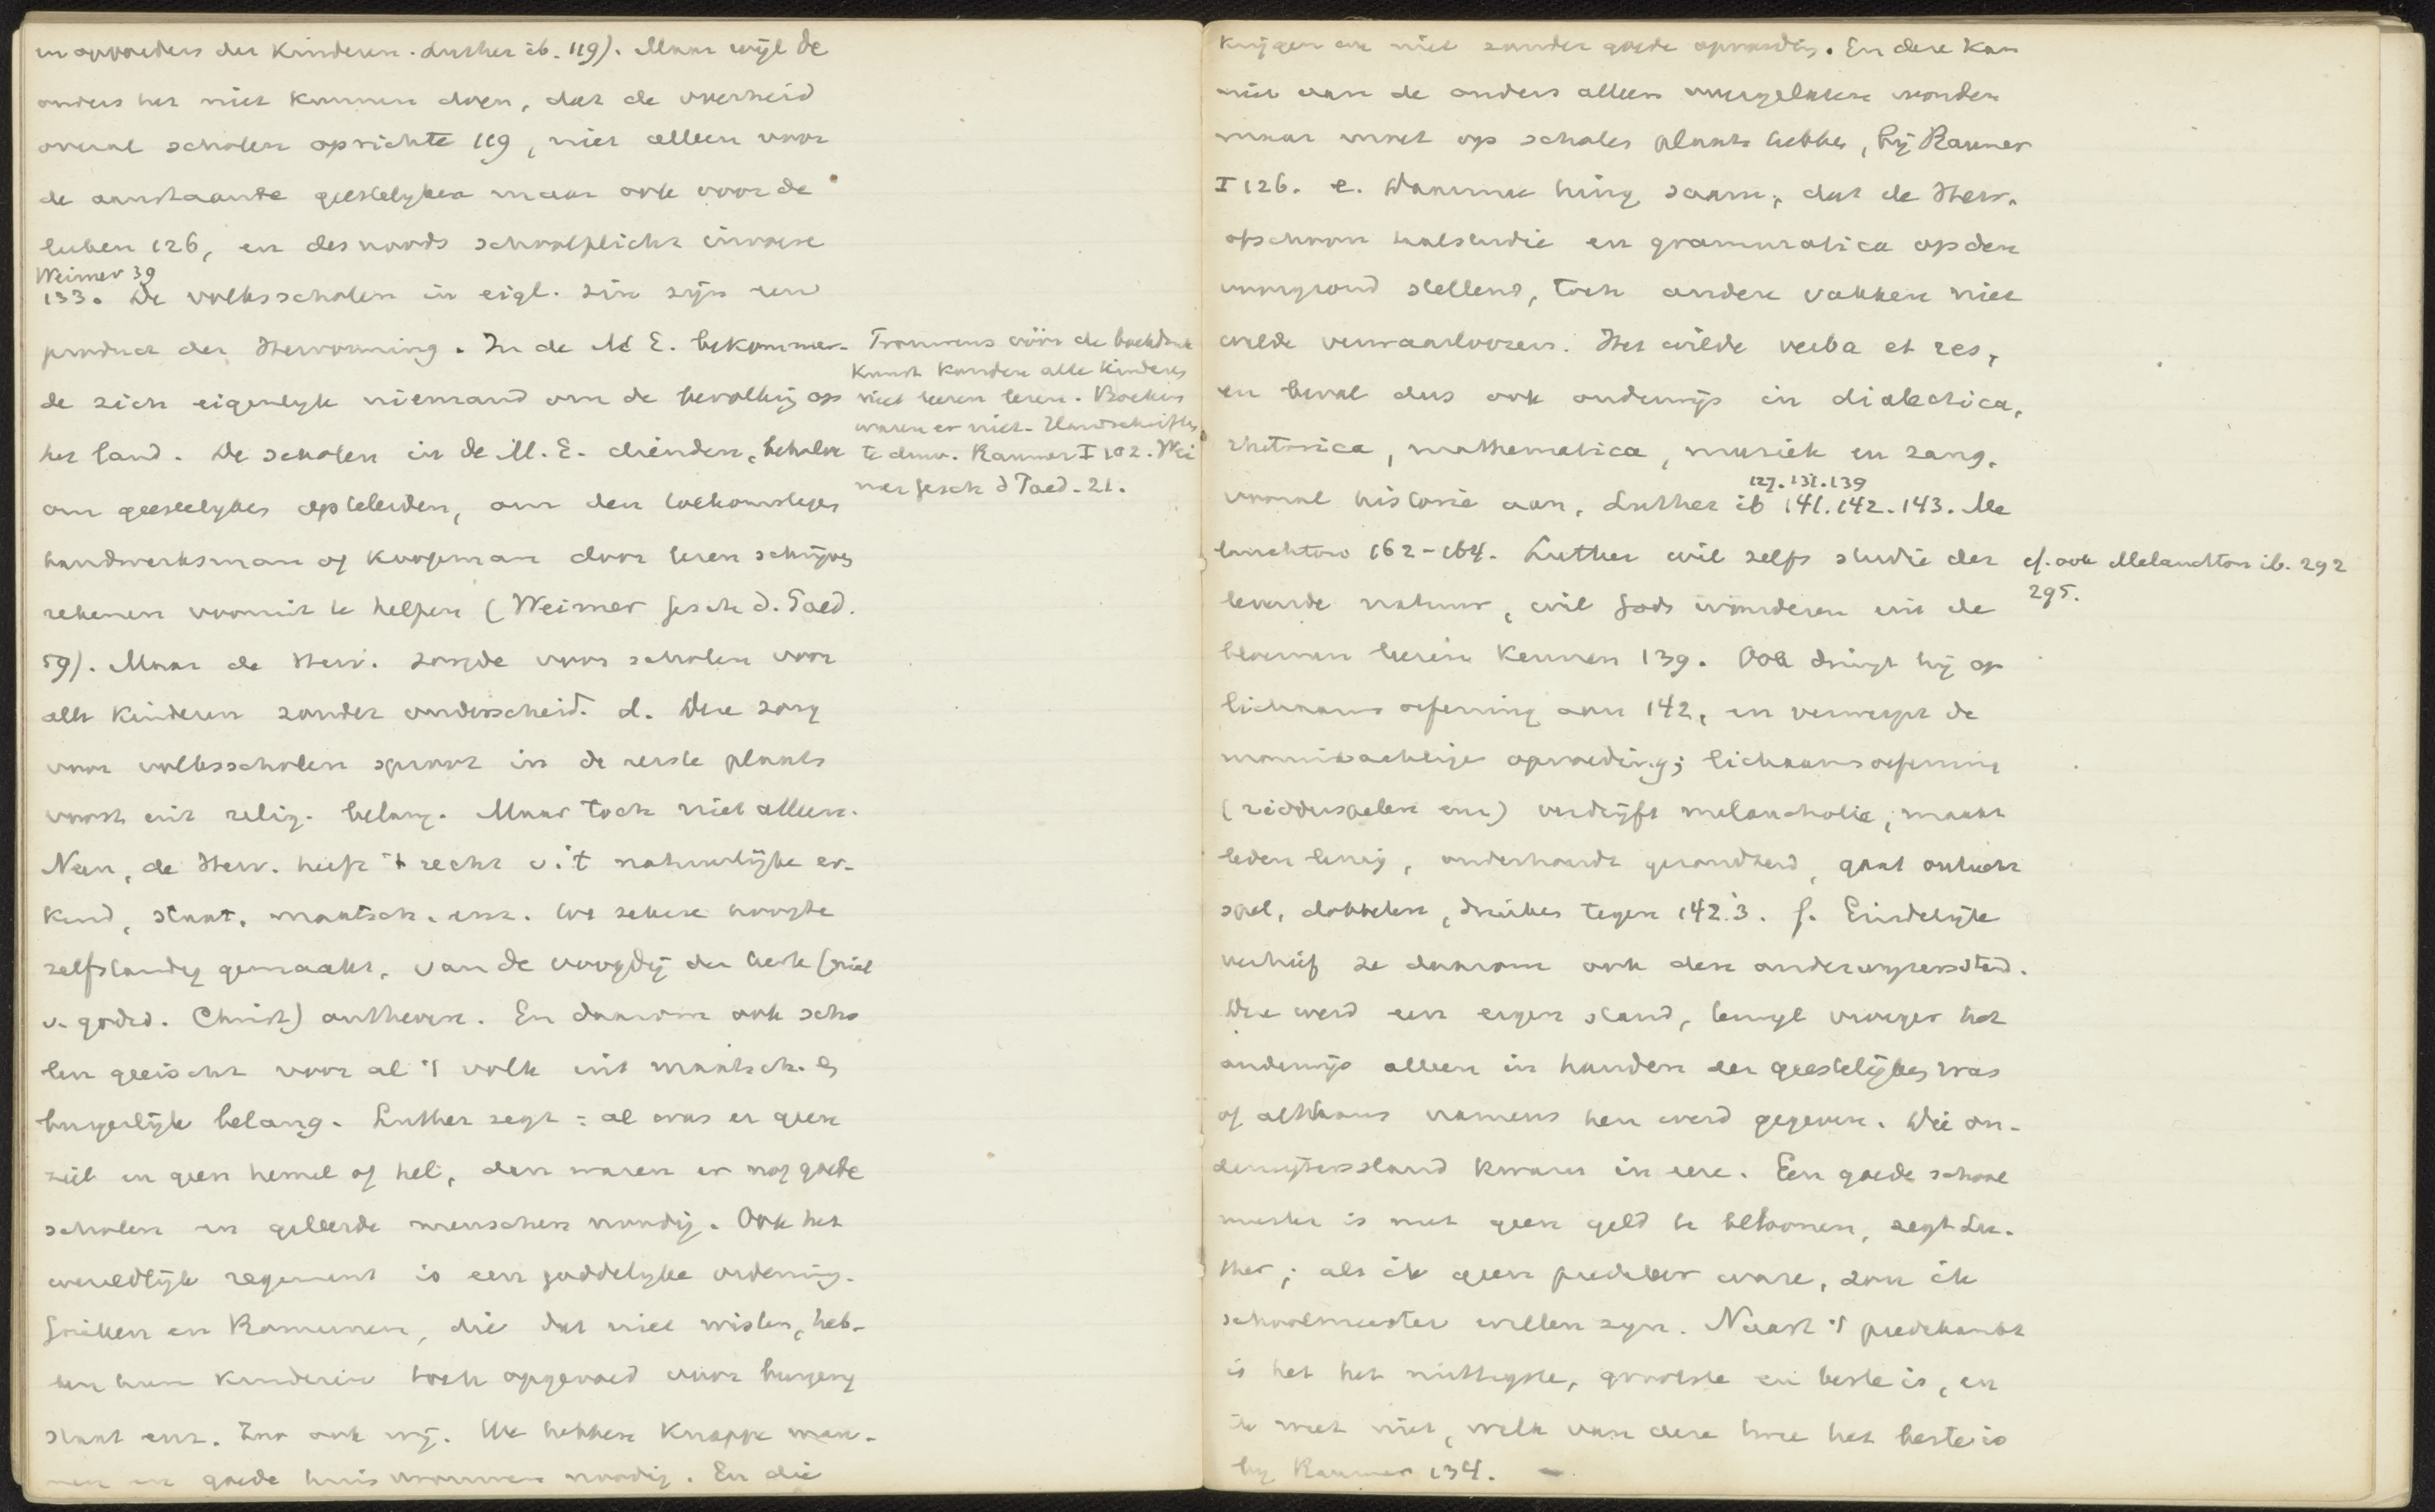 en opvoeders der kinderen. Luther ib. 119). Maar wijl de
ouders het niet kunnen doen, dat de overheid
overal scholen oprichte 119, niet alleen voor
de aanstaande geestelyken maar ook voor de
leeken 126, en des noods schoolplicht invoere
Weimer 39
133. De volksscholen in eigl. zin zijn een
product der Hervorming. In de M E. bekommer-
de zich eigenlyk niemand om de bevolking op
het land. De scholen in de M. E. dienden, behalve
om geestelykes opteleiden, om den toekomstigen
handwerksman of koopman door lezen schrijven
rekenen vooruit te helpen (Weimer Gesch d. Paed.
59). Maar de Herv. zorgde voor scholen voor
alle kinderen zonder onderscheid. d. Deze zorg
voor volksscholen sproot in de eerste plaats
voort uit relig. belang. Maar toch niet alleen.
Neen, de Herv. heeft 't recht v. 't natuurlijke er-
kend, staat, maatsch. enz. tot zekere hoogte
zelfstandig gemaakt, van de voogdij der kerk (niet
v. godsd. Christ) ontheven. En daarom ook scho
len geëischt voor al 't volk uit maatsch. en
burgerlijk belang. Luther zegt: al was er geen
ziel en geen hemel of hel, dan waren er nog goede
scholen en geleerde menschen noodig. Ook het
wereldlijk regement is een goddelyke ordening.
Grieken en Romeinen, die dat niet wisten, heb-
ben hun kinderen toch opgevoed voor burgerij
staat enz. Zoo ook wij. We hebben knappe man-
nen en goede huisvrouwen noodig. En die
Trouwens vóór de boekdruk
kunst konden alle kinderen
niet leeren lezen. Boeken
waren er niet. Handschriften
te duur. Raumer I 102. Wei
mer Gesch d Paed. 21.
krijgen we niet zonder goede opvoeding. En deze kan
niet aan de ouders alleen overgelaten worden
maar moet op scholen plaats hebben, bij Raumer
I 126. e. Daarmee hing saam, dat de Herv.
ofschoon taalstudie en grammatica op den
voorgrond stellend, toch andere vakken niet
wilde verwaarloozen. Het wilde verba et res,
en beval dus ook onderwijs in dialectica,
rhetorica, mathematica, muziek en zang,
127. 131. 139
vooral historie aan, Luther ib 141. 142. 143. Me
lanchton 162-164. Luther wil zelfs studie der
levende natuur, wil Gods wonderen uit de
bloemen leeren kennen 139. Ook dringt hij op
lichaamsoefening aan 142, en verwerpt de
monnikachtige opvoeding; lichaamsoefening
(ridderspelen enz) verdrijft melancholie, maakt
leden lenig, onderhoudt gezondheid, gaat ontucht
spel, dobbelen, drinken tegen 142.3. f. Eindelijk
verhief ze daarom ook den onderwyzersstand.
Die werd een eigen stand, terwyl vroeger het
onderwijs alleen in handen der geestelijken was
of althans namens hen werd gegeven. Die on-
derwijzersstand kwam in eere. Een goede school
meester is met geen geld te beloonen, zegt Lu-
ther; als ik geen prediker ware, zou ik
schoolmeester willen zyn. Naast 't predikambt
is het het nuttigste, grootste en beste is, en
ik weet niet, welk van deze twee het beste is
by Raumer 134. –
cf. ook Melanchton ib. 292
295.